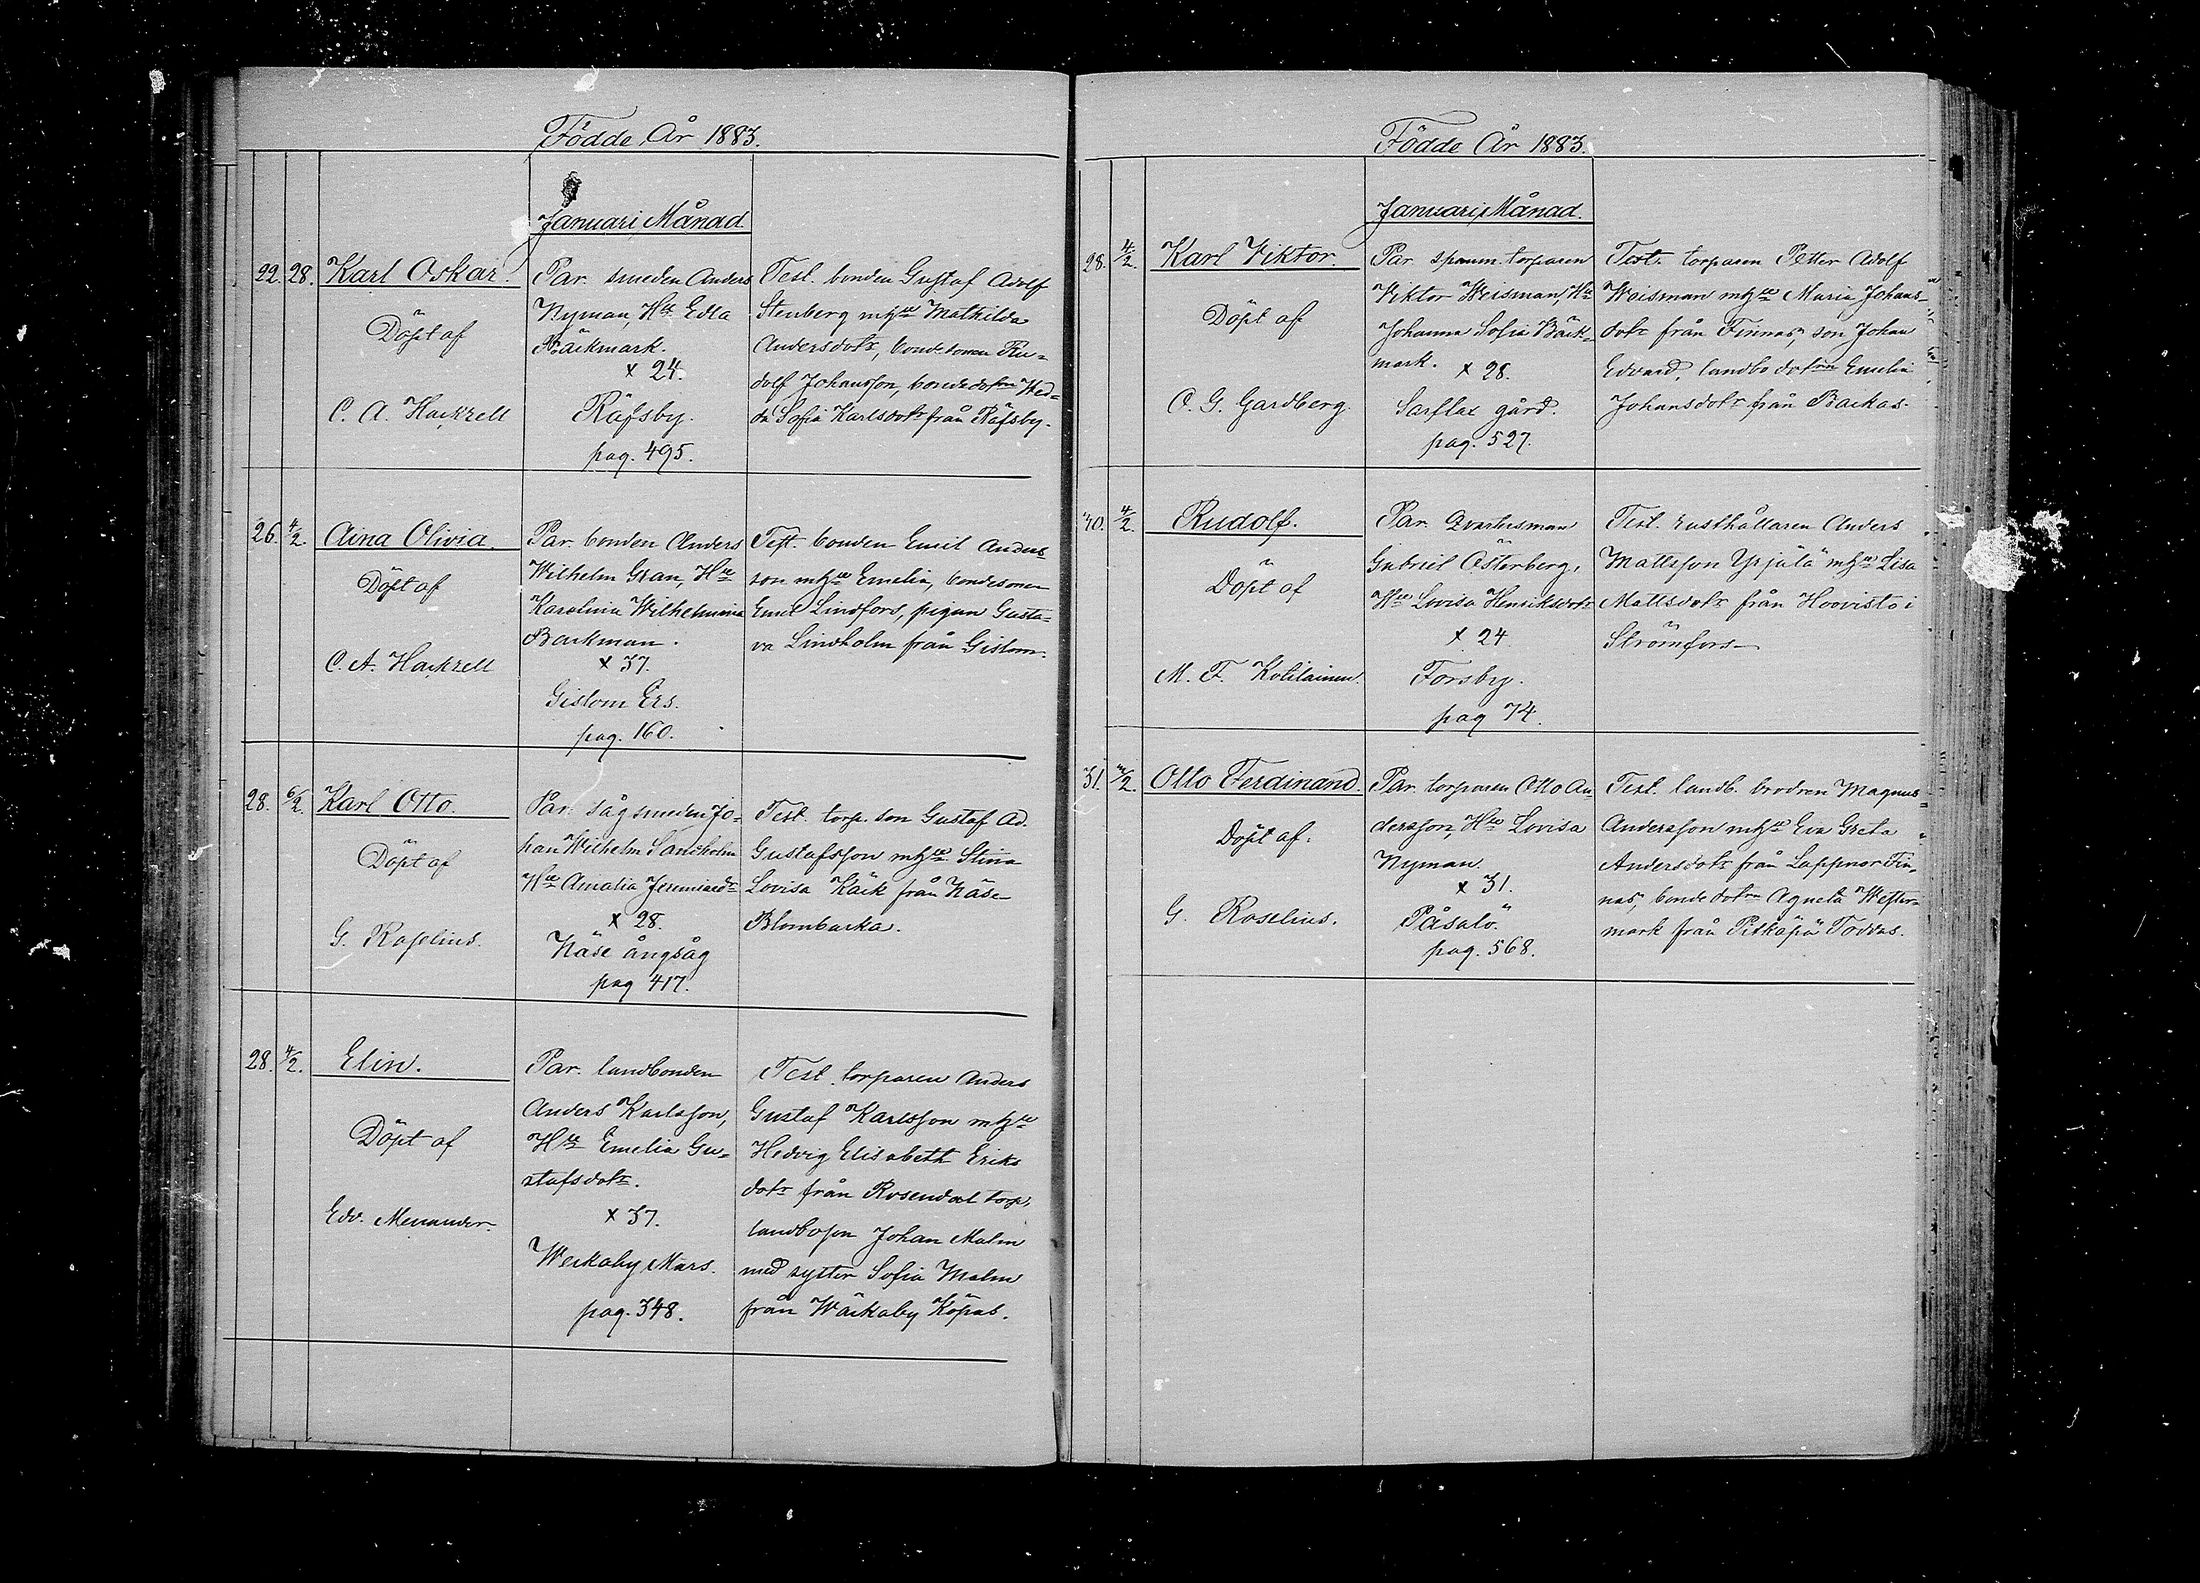 Födde År 1883.
Januari Månad
22. 28. Karl Oskar.
Döpt af
C. A. Hackzell
Par. smeden Anders
Nyman, Hu Edla
Bäckmark.
x 24.
Räfsby.
pag. 495.
Test. bonden Gustaf Adolf
Stenberg m hu Mathilda
Andersdotr, bondesonen Ru-
dolf Johansson, bondedotren Hed-
da Sofia Karlsdotr från Räfsby.
26. 4/2. Aina Olivia.
Döpt af
C. A. Hackzell
Par. bonden Anders
Wilhelm Gran, Hu
Karolina Wilhelmina
Backman.
x 37.
Gislom Ers.
pag. 160.
Test. bonden Emil Anders
son m hu Emelia, bondesonen
Emil Lindfors, pigan Gusta-
va Lindholm från Gislom.
28. 6/2. Karl Otto.
Döpt af
G. Roselius.
Par. sågsmeden Jo-
han Wilhelm Sandholm
Hu Amalia Jeremiasdr
x 28.
Näse ångsåg
pag 417.
Test. torp. son Gustaf Ad.
Gustafsson m hu Stina
Lovisa Käck från Näse
Blombacka.
28. 4/2. Elin.
Döpt af
Edv. Menander.
Par. landbonden
Anders Karlsson,
Hu Emelia Gu-
stafsdotr.
x 37.
Weckoby Mars.
pag. 348.
Test. torparen Anders
Gustaf Karlsson m hu
Hedvig Elisabeth Eriks
dotr från Rosendal torp,
landboson Johan Malm
med syster Sofia Malm
från Wäckoby Köpas.
Födde År 1883.
Januari Månad.
28. 4/2. Karl Viktor.
Döpt af
C. G. Gardberg.
Par. spanm. torparen
Viktor Weisman, Hu
Johanna Sofia Bäck-
mark. x 28.
Sarflax gård.
pag. 527.
Test. torparen Petter Adolf
Woisman m hu Maria Johans-
dotr från Finnas, son Johan
Edvard, landbo dotren Emelia
Johansdotr från Backas.
30. 4/2. Rudolf.
Döpt af
M. F. Kotilainen.
Par. Qvartersman
Gabriel Österberg,
Hu Lovisa Henriksdotr
x 24
Forsby.
pag 74.
Test. rusthållaren Anders
Mattsson Yrjälä m hu Lisa
Mattsdotr från Hoovisto i
Strömfors
31. /2. Otto Ferdinand.
Döpt af.
G. Roselius.
Par. torparen Otto An-
dersson, Hu Lovisa
Nyman.
x 31.
Påsalö.
pag. 568.
Test. landb. brodren Magnus
Andersson m hu Eva Greta
Andersdotr från Lappnor Fin-
nas, bondedotren Agneta Wester-
mark från Pitkäpä Toddas.